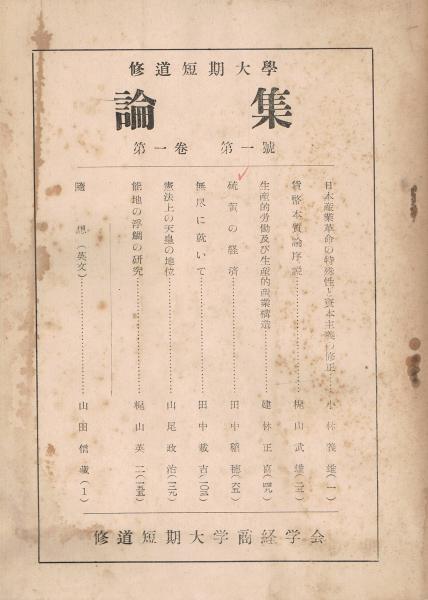 修道短期大學
論集
第一卷 第一號
日本産業革命の特殊性と資本主義の修正……小林義雄(一)
貨幣本質論序説……梶山武雄(三五)
生産的労働及び生産的産業構造……建林正喜(四九)
硫黄の経済……田中稲穂(六五)
無尽に就いて……田中蔵吉(一〇五)
憲法上の天皇の地位……山尾政治(一三九)
能地の浮鯛の研究……梶山英二(一五五)
隨想(英文)……山田信蔵(1)
修道短期大学商経学会